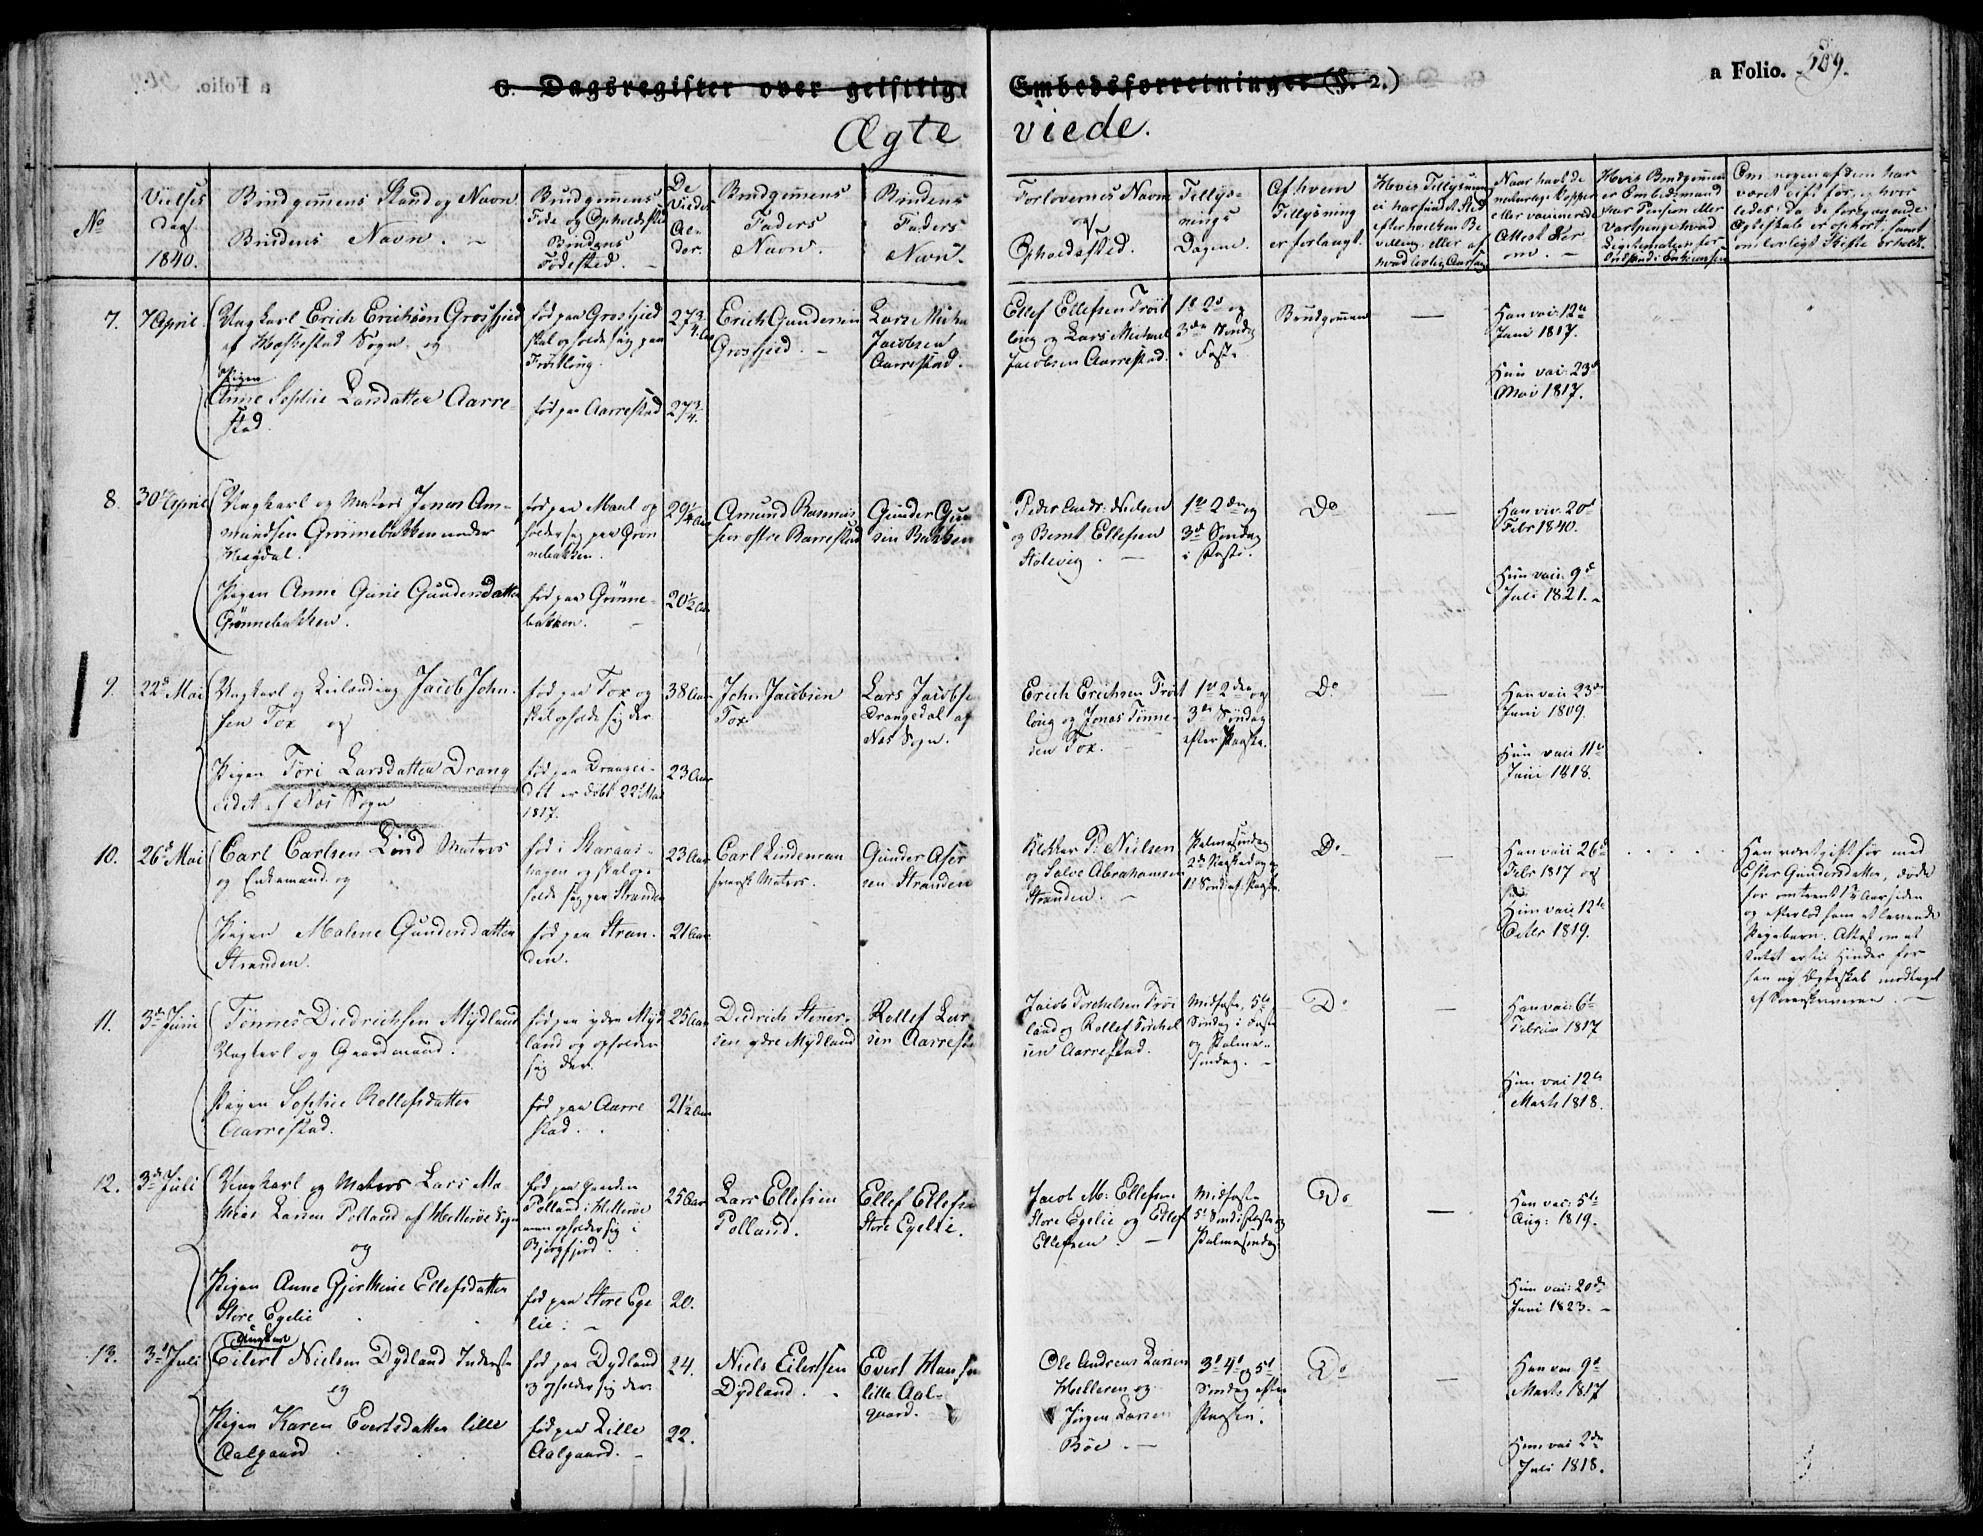 a Folio. 509.
C. Dagsregister over geistlige Embedsforretninger (§. 2.)
Ægte viede.
No
Vielses
Dag.
1840.
Brudgommens Stand og Navn
Brudens Navn.
Brudgommens
Føde og Opholdsted
Brudens
Fødested.
De
Viedes
Al-
der.
Brudgommens
Faders
Navn.
Brudens
Faders
Navn.
Forlovernes Navn
og
Opholdsted.
Tillys-
nings
Dagene.
Af hvem
Tillysning
er forlangt.
Hvis Tillysning
ei har fundet Sted
efter hvilken Be-
villing, eller af
hvad lovlig Aarsag
Naar havt de
naturlige Kopper
eller vaccinerede
Attest der-
om.
Hvis Brudgommen
er Embedsmand
har Pension eller
Vartpenge hvad
Om nogen af dem har
været gift før, og hvor-
ledes da de foregaaende
Ægteskab er ophørt, samt
om lovligt Skifte er holdt.
7.
7 April
Ungkarl Erich Erichsen Grosfjeld
af Høskestad Sogn og
Pigen
Anne Sophie Larsdatter Aarre-
stad.
født paa Grosfjeld
skal opholde sig paa
Frøitlong.
født paa Aarrestad
27 3/4 Aar
27 3/4.
Erich Gundersen
Grosfjeld.
Lars Micha
Jacobsen
Aarrestad.
Ellef Ellefsen Frøit
long og Lars Michael
Jacobsen Aarrestad.
1e 2d og
3die Søndag
i Faste
Brudgommen
Han vac: 12te
Juni 1817.
Hun vac: 23d
Mai 1817.
8.
30te April
Ungkarl og Matros Jonas Am-
mundsen Grønnebakken under
Hægdal.
Pigen Anne Gurie Gundersdatter
Grønnebakken.
født paa Maal og
holder sig paa Grøn
nebakken.
født paa Grønne-
bakken.
29 1/4 Aar
20 1/2 Aar
Amund Rasmus-
sen østre Barrestad
Gunder Gun
sen Bakken
Peder Andr: Nielsen
og Bernt Ellefsen
Stølevig.
1te 2den og
3d Søndag
i Faste.
Do
Han vac. 20d
Febr 1840.
Hun vac: 9d
Juli 1821.
9.
22d Mai
Ungkarl og Leilænding Jacob John-
sen Tox og
Pigen Tori Larsdatter Drang
eidet af Næs Sogn
født paa Tox og
skal opholde sig der
født paa Drangei-
det er døbt 22d Mai
1817.
38 Aar
23 Aar
John Jacobsen
Tox
Lars Jacobse
Drangedal af
Næs Sogn.
Erich Erichsen Frøit
long og Jonas Tønne-
sen Tox.
1te 2den og
3die Søndag
efter Paaske.
Do
Han vac: 23de
Juni 1809.
Hun vac: 11te
Juni 1818.
10.
26d Mai
Carl Carlsen Lind Matros
og Enkemand og
Pigen Malene Gundersdatter
Stranden.
født i Skaraas-
hagen og skal op-
holde sig paa Stranden
født paa Stran-
den.
23 Aar
21 Aar
Carl Lindeman
svensk Matros.
Gunder Aser
sen Stranden
Klokker P. Nielsen
og Salve Abrahamsen
Stranden.
Palmesøndag
2den Paaskedag og
1e Sønd: ef. Paaske.
Do
Han vac: 26d
Febr 1817 og
Hun vac: 12te
Octbr 1819.
Han været gift før med
Ester Gundersdatter, døde
for omtrent 1 1/2 Aar siden
og efterlod ham et levende
Pigebarn. Attest om at
Intet er til Hinder for
hans ny Ægteskab modtaget
af Sorenskriveren.
11.
3die Juni
Tønnes Diedrichsen Mydland
Ungkarl og Gaardmand.
Pigen Sophie Rollefsdatter
Aarrestad.
født paa ydre Myd
land og opholder
sig der.
født paa Aarre
stad.
25 Aar
21 1/2 Aar
Diedrich Stener-
sen ydre Mydland
Rollef Lar
sen Aarrestad
Jacob Torchelsen Frøi
land og Rollef Torchel
sen Aarrestad.
Midfaste, 5te
Søndag i Faste
og Palme-
søndag.
Do
Han vac: 6te
Februar 1817
Hun vac 12te
Marts 1818.
12.
3die Juli
Ungkarl og Matros Lars Ma-
thias Larsen Polland af Helleröe Sogn
og
Pigen Anne Gjerthine Ellefsdatter
Store Egelie
født paa Gaarden
Polland i Helleröe
men opholder sig i
Bjergfjord.
født paa Store Ege
lie.
25 Aar
20.
Lars Ellefsen
Polland.
Ellef Ellefse
Store Egelie.
Jacob M: Ellefsen
Store Egelie og Ellef
Ellefsen.
Midfaste
5te Sønd: i Faste og
Palmesøndag.
Do
Han vac: 5te
Aug: 1819.
Hun vac: 20de
Juni 1823.
13.
3d Juli
Ungkarl
Eilert Nielsen Dydland Inderste
og
Pigen Karen Evertsdatter lille
Aalgaard
født paa Dydland
og opholder sig der
født paa Lille
Aalgaard.
24.
22.
Niels Eilertsen
Dydland.
Evert Hanse
lille Aal-
gaard.
Ole Andreas Larsen
Helleren og
Jørgen Larsen
Böe.
3d 4d og 5te
Søndag efter
Paaske.
Do
Han vac. 9d
Marts 1817
Hun vac 2den
Juli 1818.